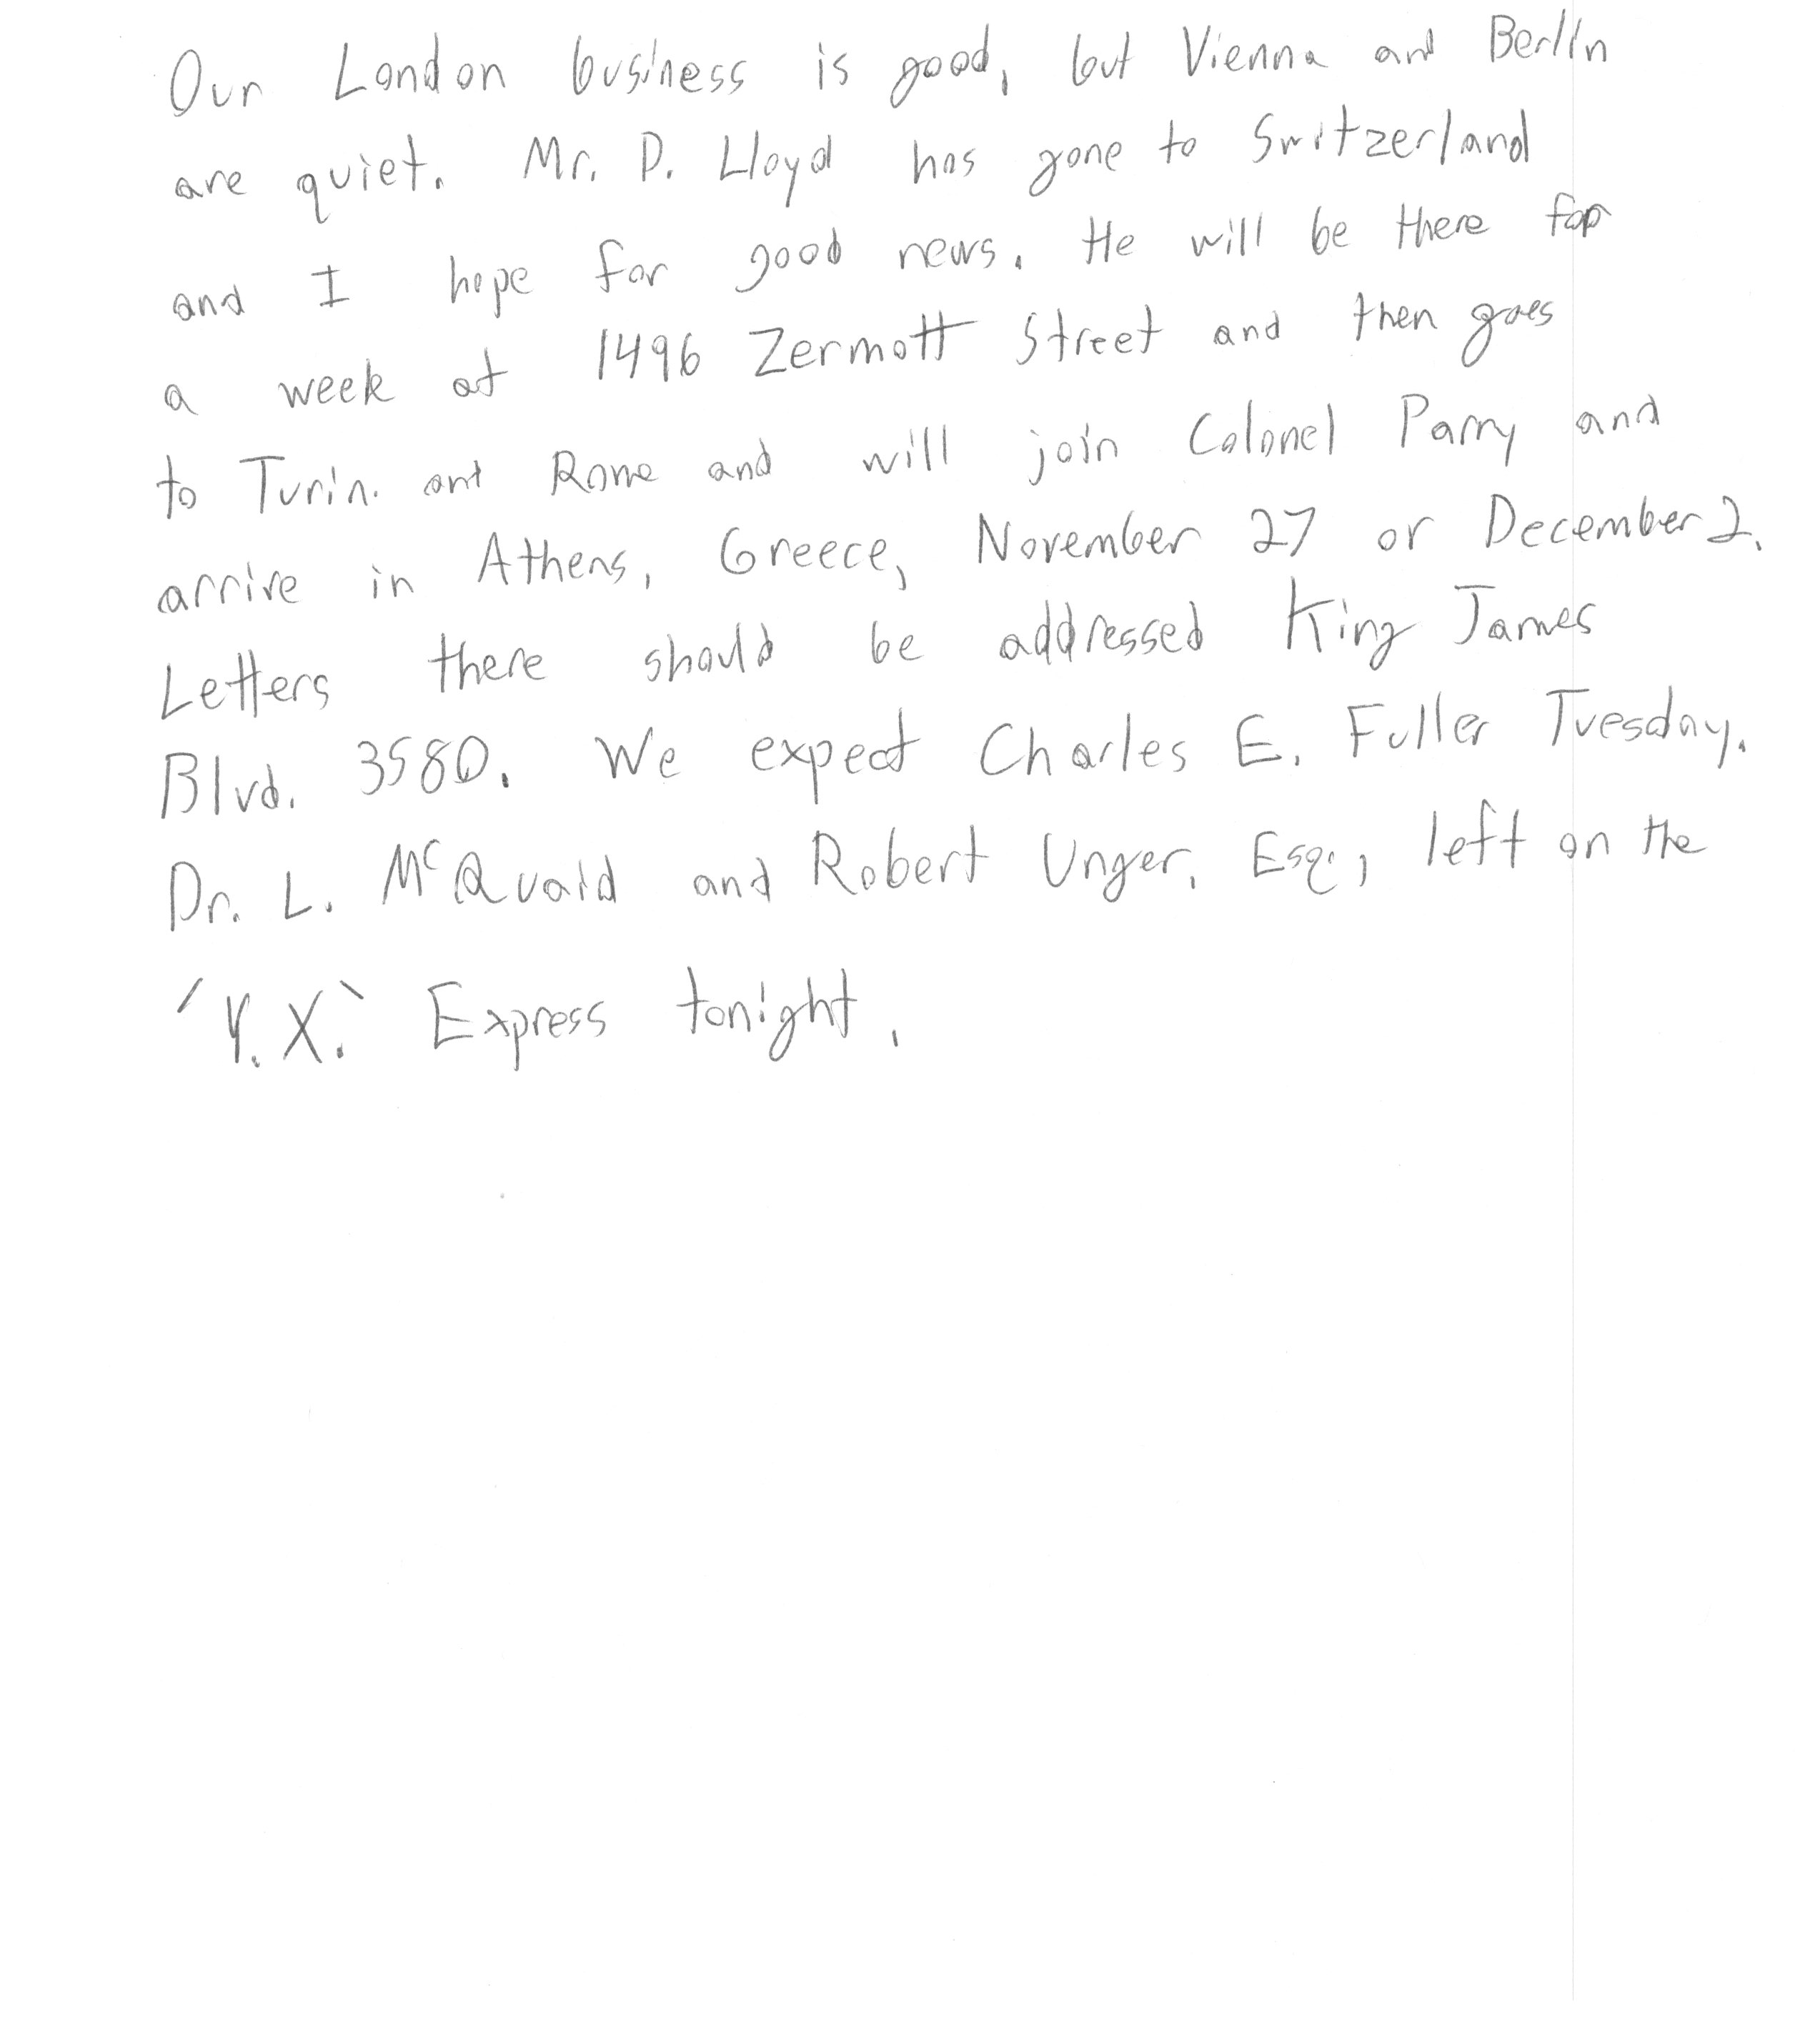 Our London business is good, but Vienna and Berlin
are quiet. Mr. D. Lloyd has gone to Switzerland
and I hope for good news. He will be there for
a week at 1496 Zermott Street and then goes
to Turin. and Rome and will join Colonel Parry and
arrive in Athens, Greece, November 27 or December 2.
Letters there should be addressed King James
Blvd. 3580. We expect Charles E. Fuller Tuesday.
Dr. L. McQuaid and Robert Unger, Esq., left on the
'Y.X.' Express tonight.